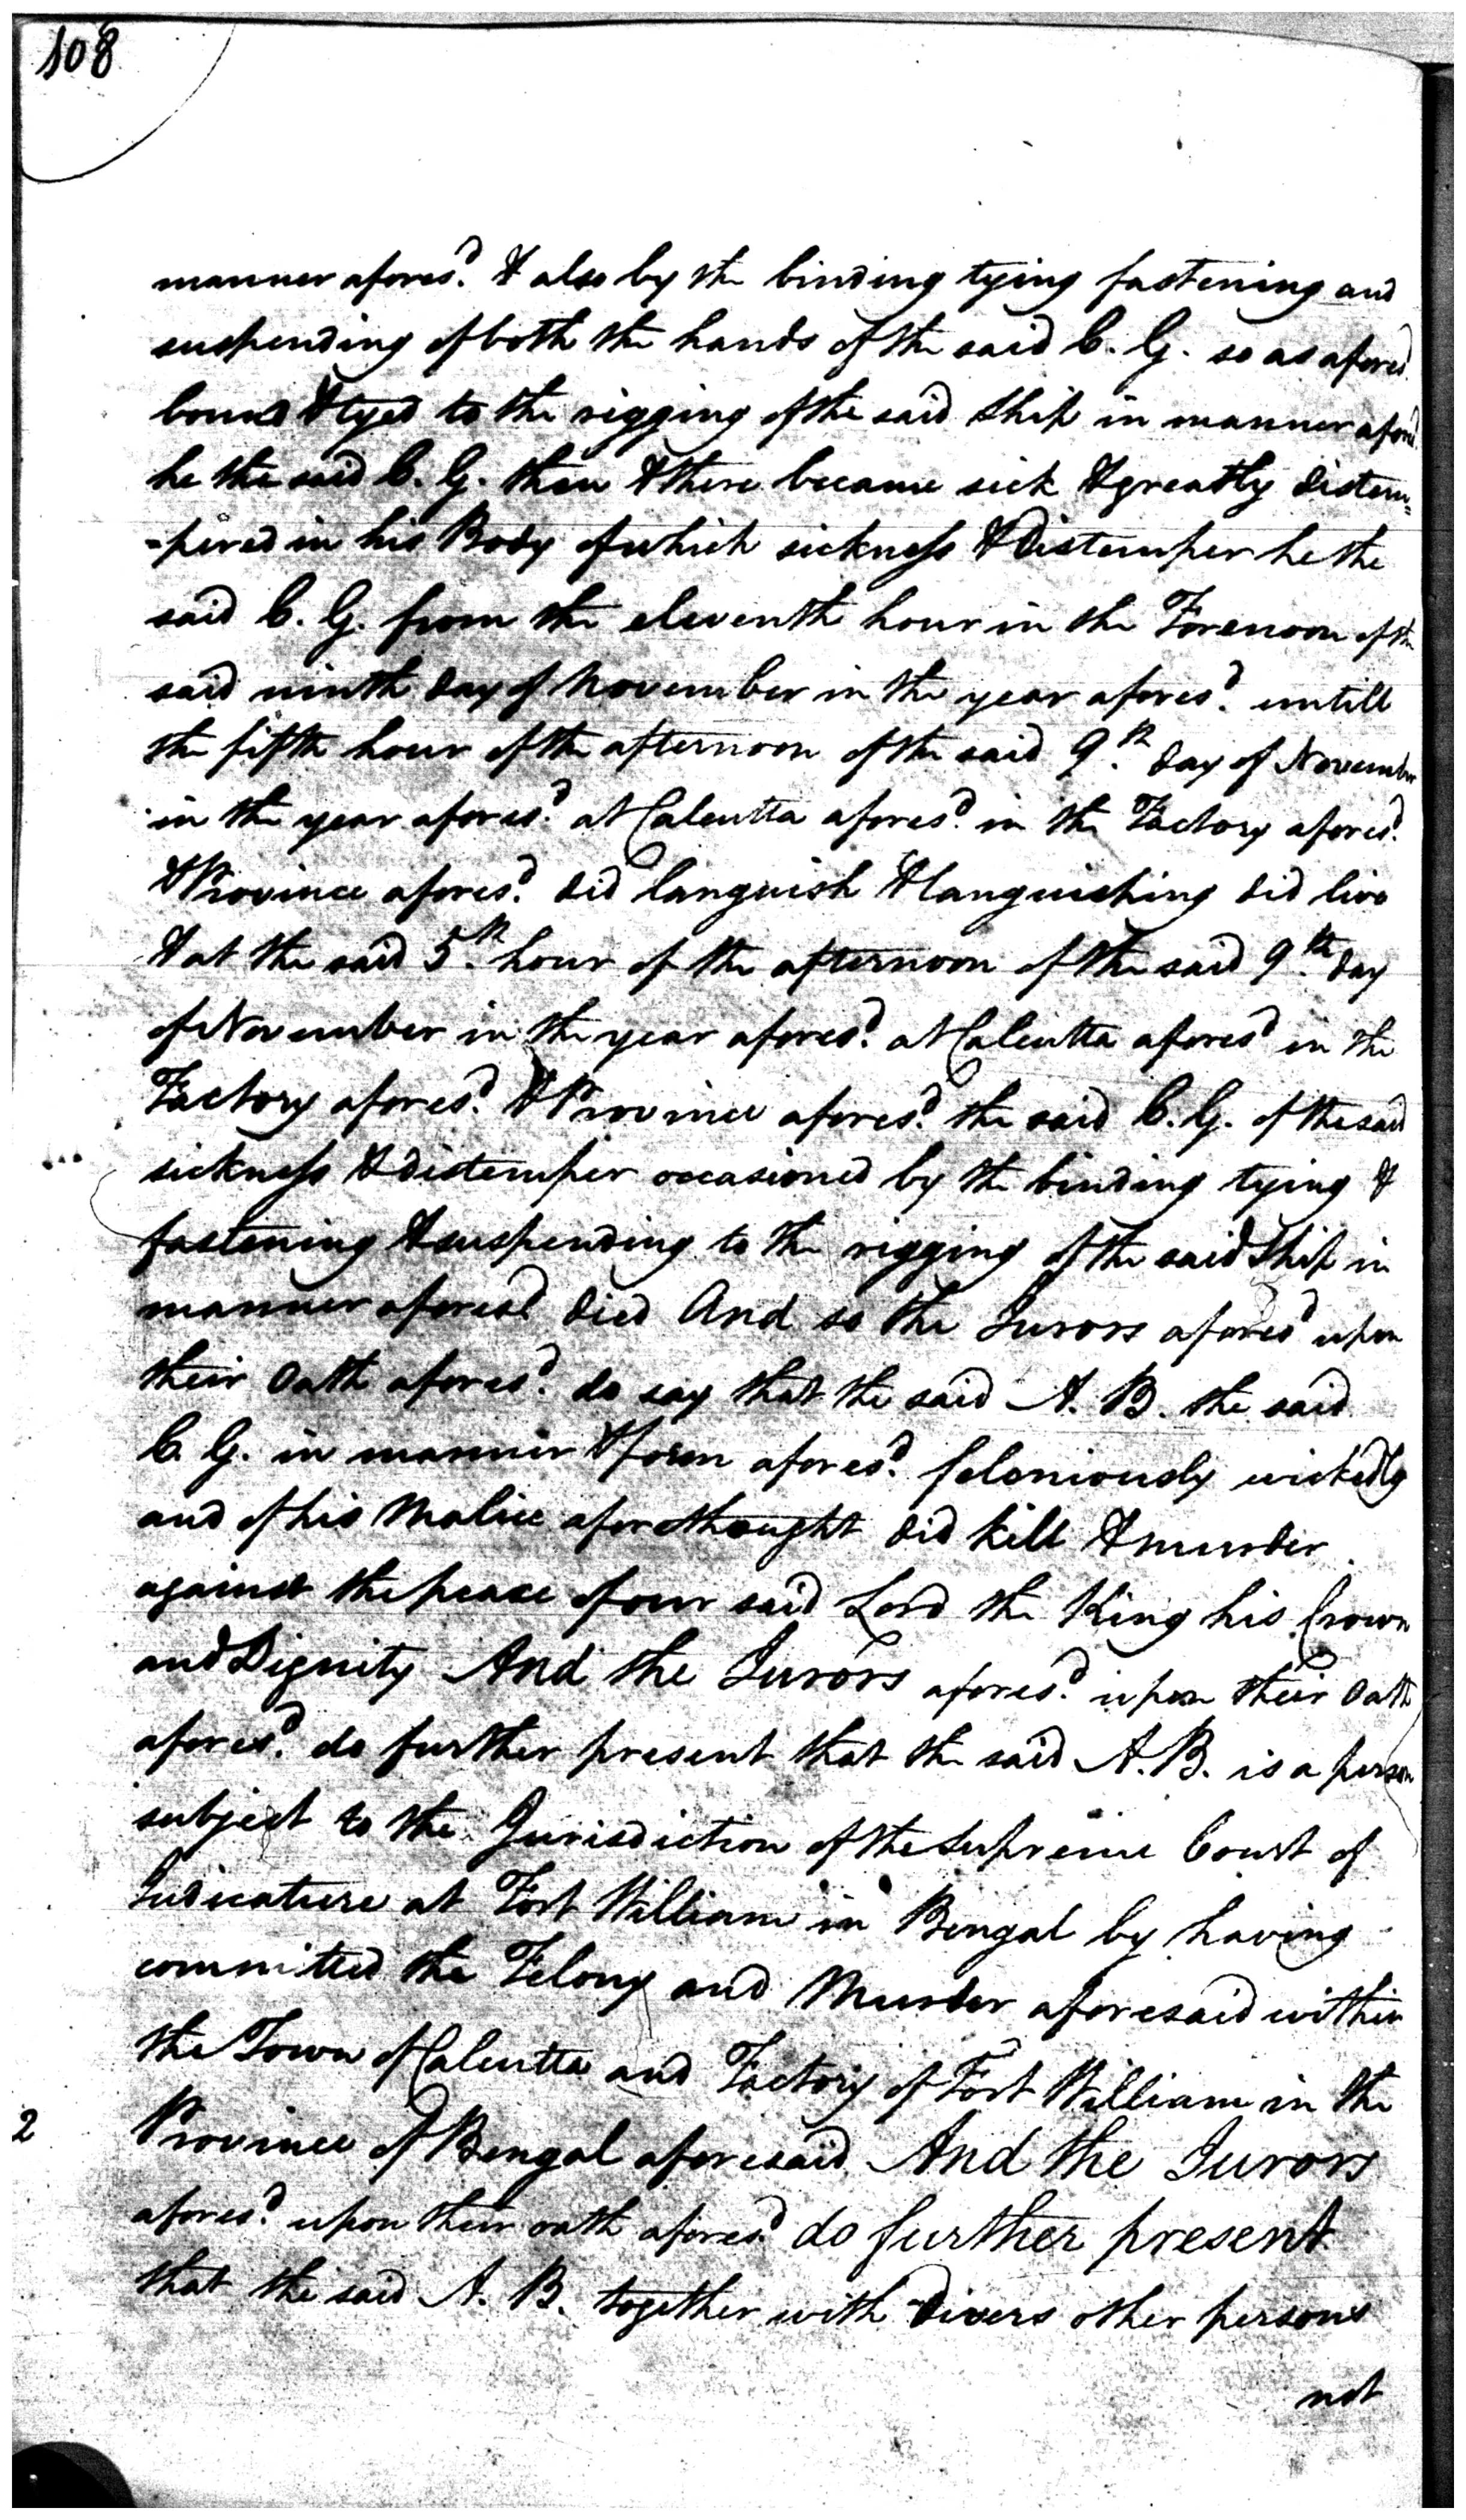 108
manner afores.d & also by the binding tying fastening and
suspending of both the hands of the said C. G. so as afores.d
bound & tyed to the rigging of the said Ship in manner afores.d
he the said C. G. then & there became sick & greatly distem=
=pered in his Body of which sickness & Distemper he the
said C. G. from the eleventh hour in the Forenoon of the
said ninth day of November in the year afores.d untill
the fifth hour of the afternoon of the said 9.th day of November
in the year afores.d at Calcutta afores.d in the Factory afores.d
& Province afores.d did languish & languishing did live
& at the said 5.th hour of the afternoon of the said 9.th day
of November in the year afores.d at Calcutta afores.d in the
Factory afores.d & Province afores.d the said C. G. of the said
sickness & distemper occasioned by the binding tying &
fastening & suspending to the rigging of the said Ship in
manner aforesd died And so the Jurors afores.d upon
their Oath afores.d do say that the said A. B. the said
C. G. in manner & form afores.d feloniously wickedly
and of his Malice aforethought did kill & murder
against the peace of our said Lord the King his Crown
and Dignity And the Jurors afores.d upon their Oath
afores.d do further present that the said A. B. is a person
subject to the Jurisdiction of the Supreme Court of
Judicature at Fort William in Bengal by having
committed the Felony and Murder aforesaid within
the Town of Calcutta and Factory of Fort William in the
2 Province of Bengal aforesaid And the Jurors
afores.d upon their oath afores.d do further present
that the said A. B. together with Divers other persons
not